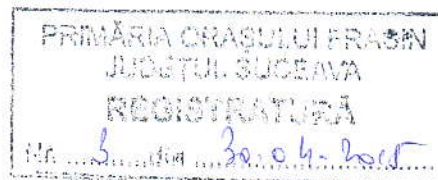 PRIMĂRIA ORAȘULUI FRASIN
JUDEȚUL SUCEAVA
REGISTRATURĂ
Nr. 3 din 30.04.2015